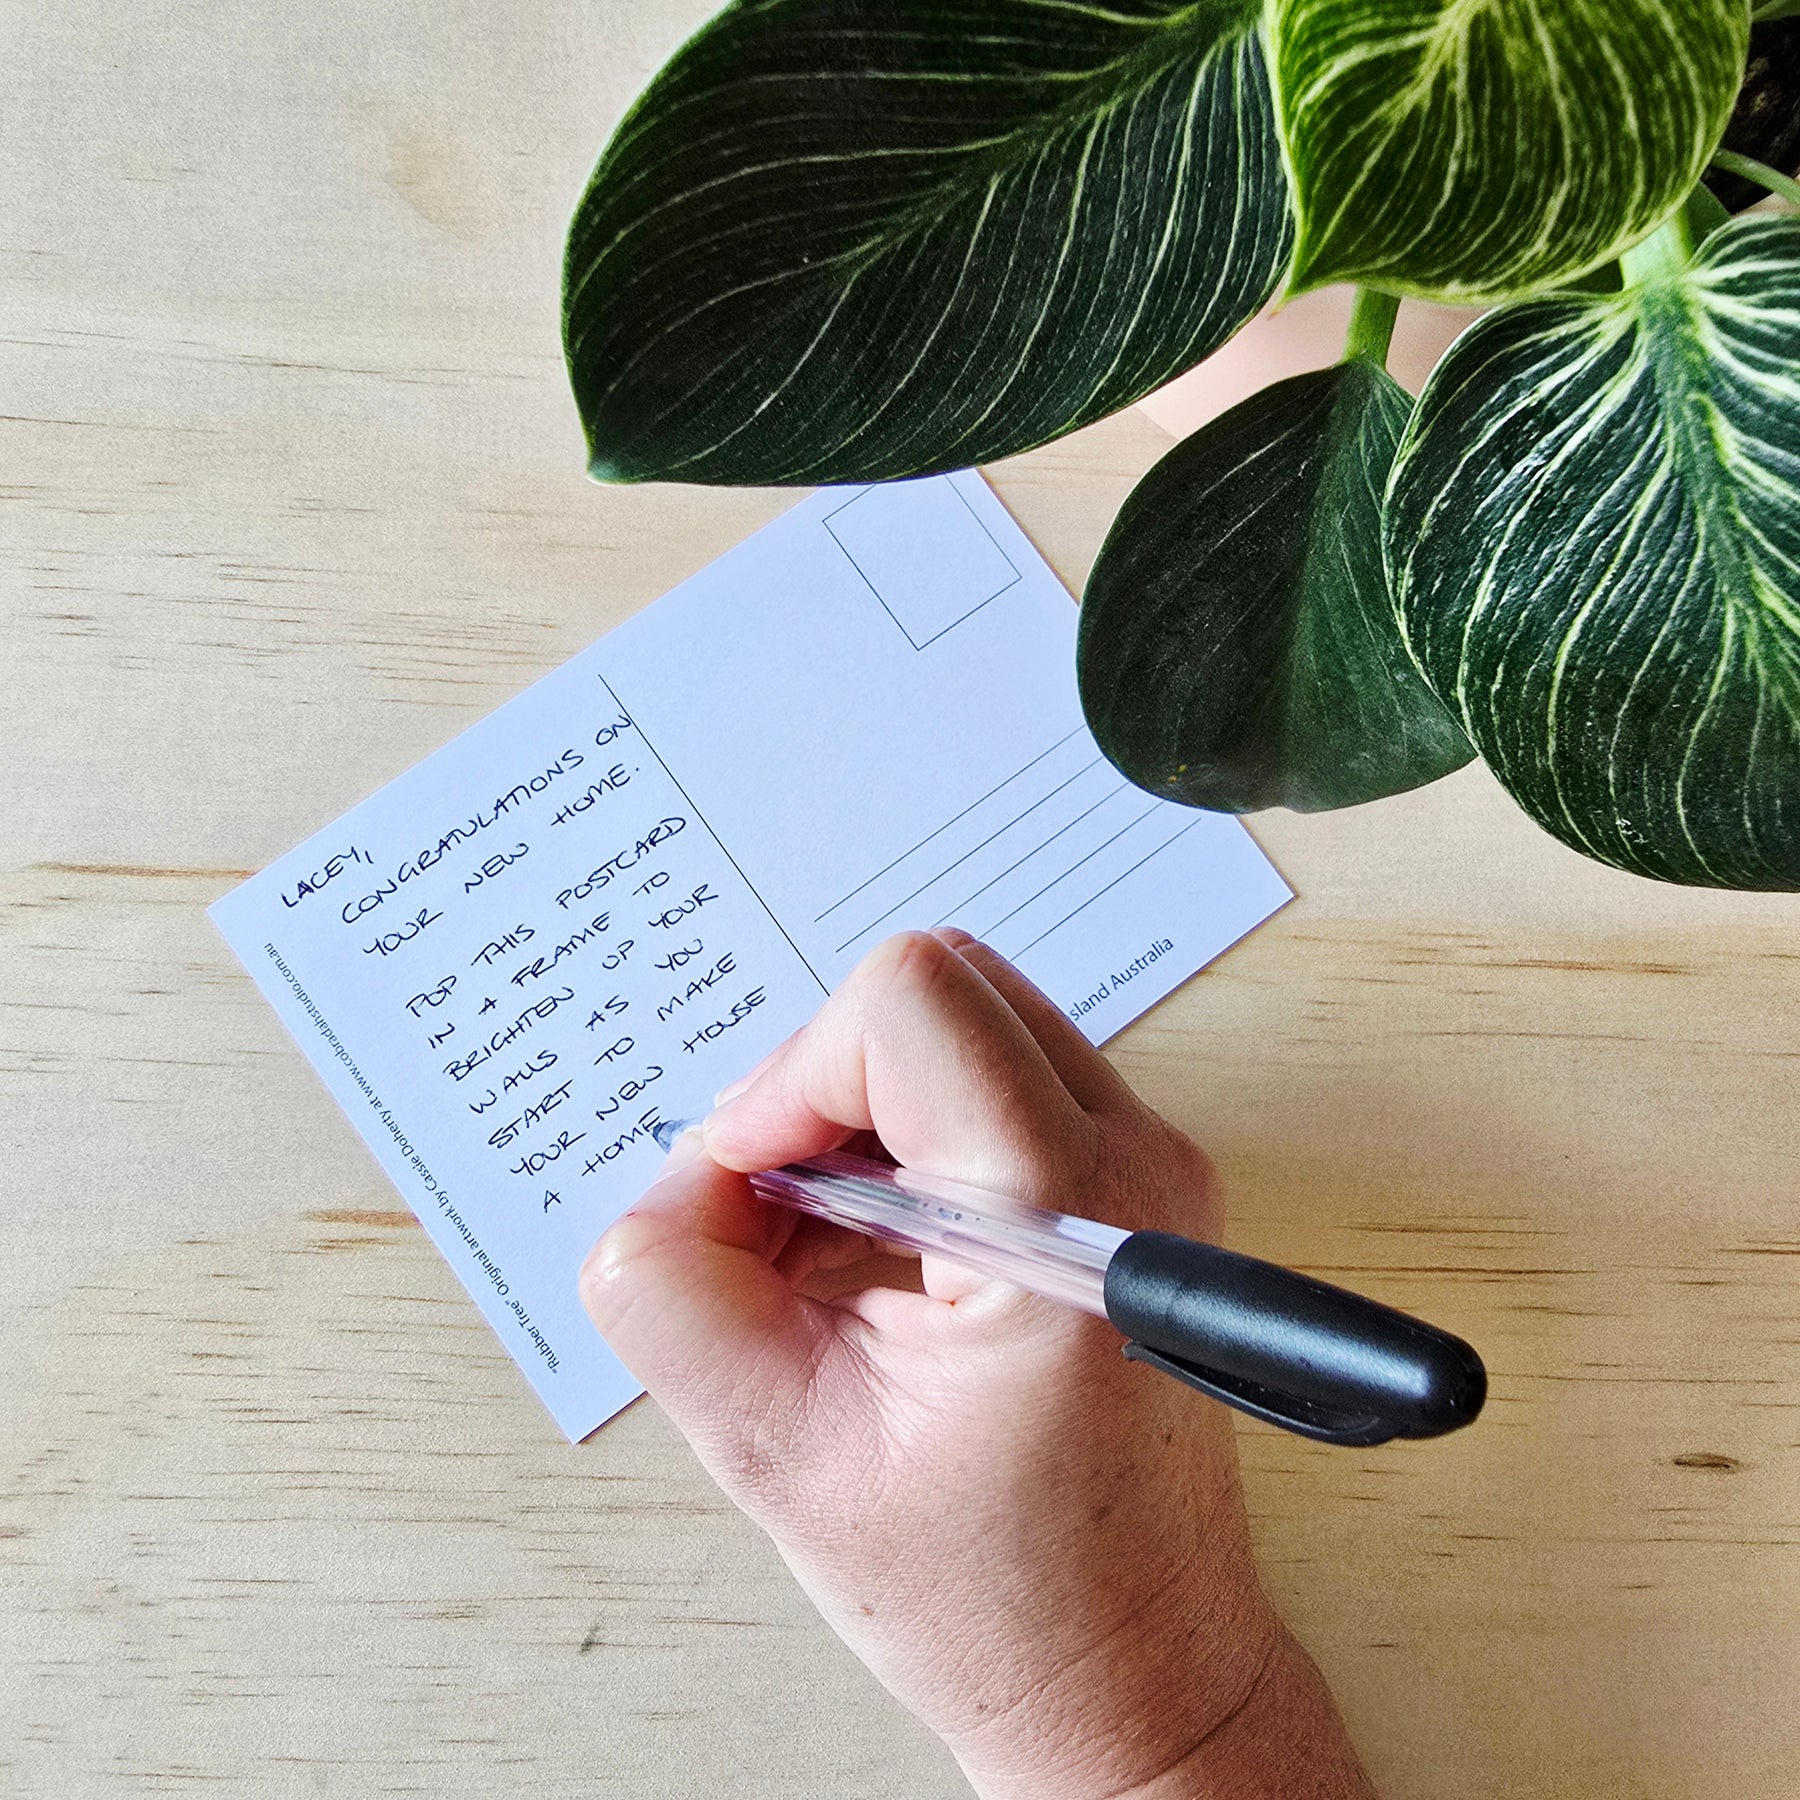 LACEY,
CONGRATULATIONS ON
YOUR NEW HOME.
POP THIS POSTCARD
IN A FRAME TO
BRIGHTEN UP YOUR
WALLS AS YOU
START TO MAKE
YOUR NEW HOUSE
A HOME
"Rubber Tree" Original artwork by Cassie Doherty at www.cobradahstudio.com.au
sland Australia